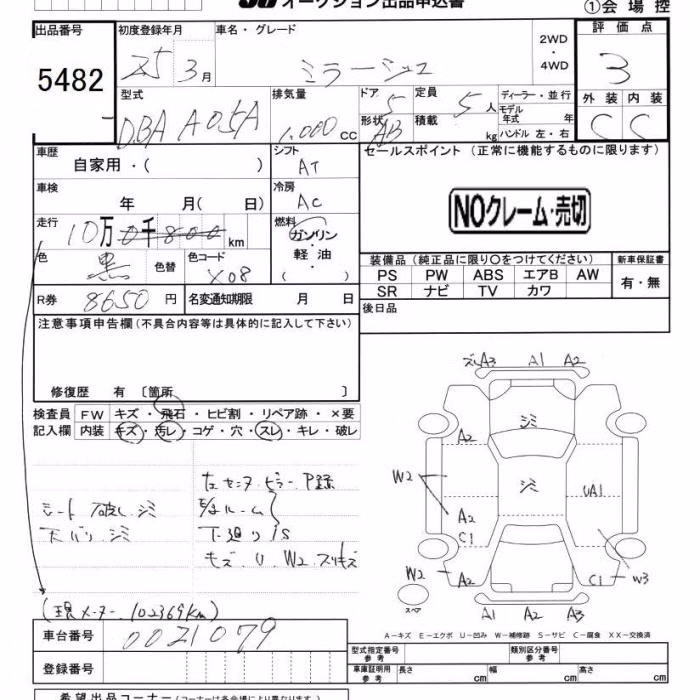 オークション出品申込書
①会場控
出品番号
5482
初度登録年月
25 3月
車名・グレード
ミラージュ
2WD
・
4WD
評価点
3
外装 内装
C C
型式
DBA A05A
排気量
1.000 cc
ドア 5
形状 AB
定員 5人
積載 kg
ディーラー・並行
モデル年式 年
ハンドル 左・右
車歴
自家用・( )
シフト
AT
セールスポイント (正常に機能するものに限ります)
NOクレーム・売切
車検
年 月( 日)
冷房
AC
走行
10万0千800km
燃料
ガソリン
・
軽油
( )
色
黒
色替
色コード
X08
R券 8650円
名変通知期限 月 日
装備品 (純正品に限り〇をつけてください)
新車保証書
PS PW ABS エアB AW
SR ナビ TV カワ
有・無
後日品
注意事項申告欄 (不具合内容等は具体的に記入して下さい)
修復歴 有 〔箇所 〕
検査員 FW キズ・飛石・ヒビ割・リペア跡・×要
記入欄 内装 キズ・汚レ・コゲ・穴・スレ・キレ・破レ
左センターピラーP録
シート 破レ シミ
天バリ シミ
ルーム
下廻りis
キズ.U.W2.スリキズ
(現メーター102369km)
ズレA3 A1 A2
シミ
A2
W2
シミ
UA1
A2
C1
W2
A2
C1
W3
スペア
A1 A2 A3
A-キズ E-エクボ U-凹み W-補修跡 S-サビ C-腐食 XX-交換済
車台番号 0021079
登録番号
型式指定番号
参考
類別区分番号
参考
車庫証明用
参考
長さ cm
幅 cm
高さ cm
希望出品コーナー